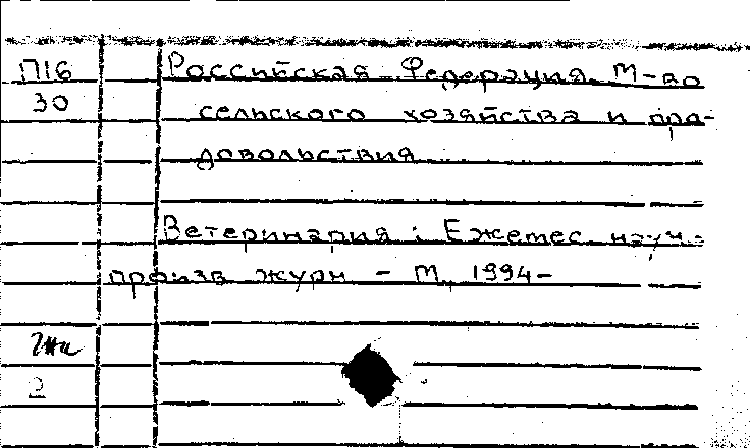 П16 Российская Федерация. М-во
30 сельского хозяйства и про-
довольствия
Ветеринария : Ежемес. науч.-
произв. журн. - М., 1994-
2